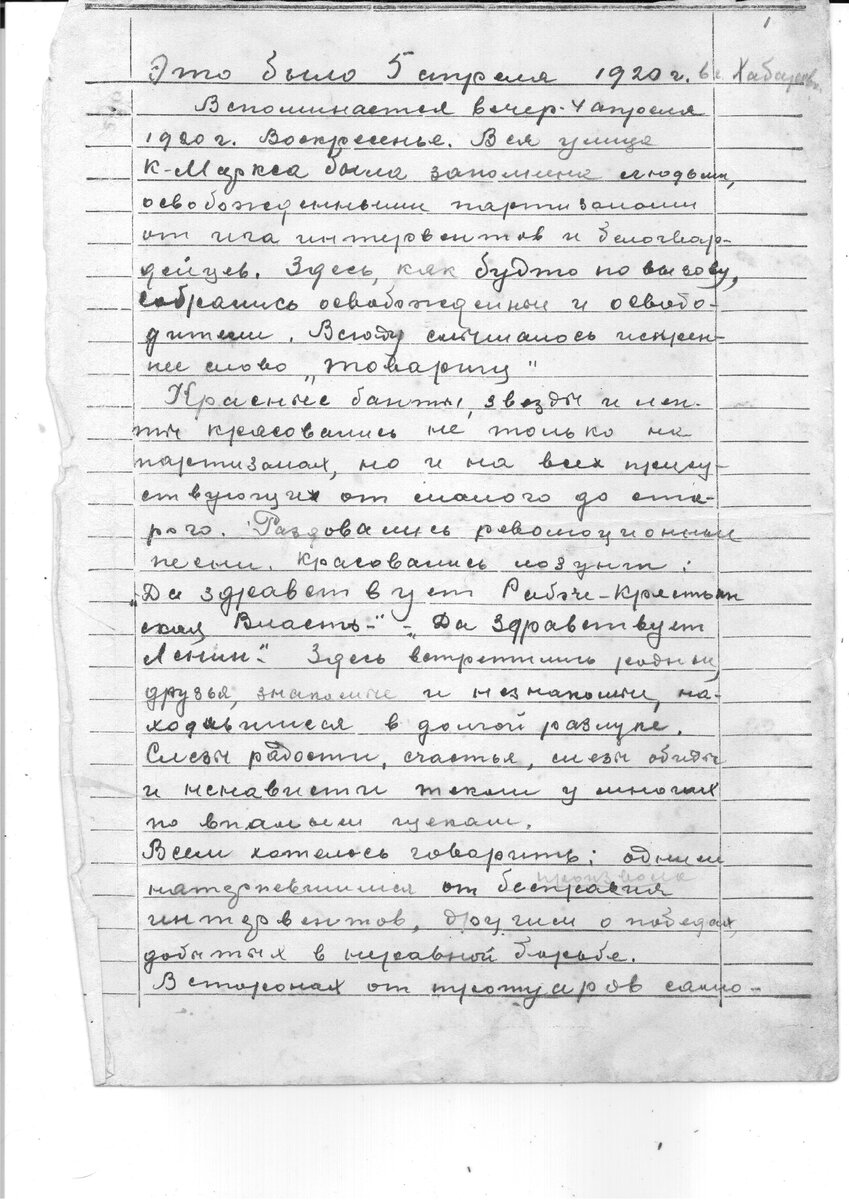 1
Это было 5 апреля 1920 г. в г. Хабаровс
Вспоминается вечер - 4 апреля
1920 г. Воскресенье. Вся улица
К-Маркса была заполнена людьми,
освобожденными партизанами
от ига интервентов и белогвар-
дейцев. Здесь, как будто по вызову,
собрались освобожденные и освобо-
дители. Всюду слышалось искрен-
нее слово „товарищ"
Красные банты, звезды и лен-
ты красовались не только на
партизанах, но и на всех прису-
ствующих от малого до ста-
рого. Раздовались революционные
песни. Красовались лозунги:
„Да здравствует Рабоче-Крестьян
ская Власть" - „Да здравствует
Ленин". Здесь встретились родные,
друзья, знакомые и незнакомые, на-
ходившиеся в долгой разлуке.
Слезы радости, счастья, слезы обиды
и ненависти текли у многих
по впалым щекам.
Всем хотелось говорить: одним
произвола
натерпевшимся от бесправия
интервентов, другим о победах,
добытых в неравной борьбе.
В сторонах от тротуаров само-